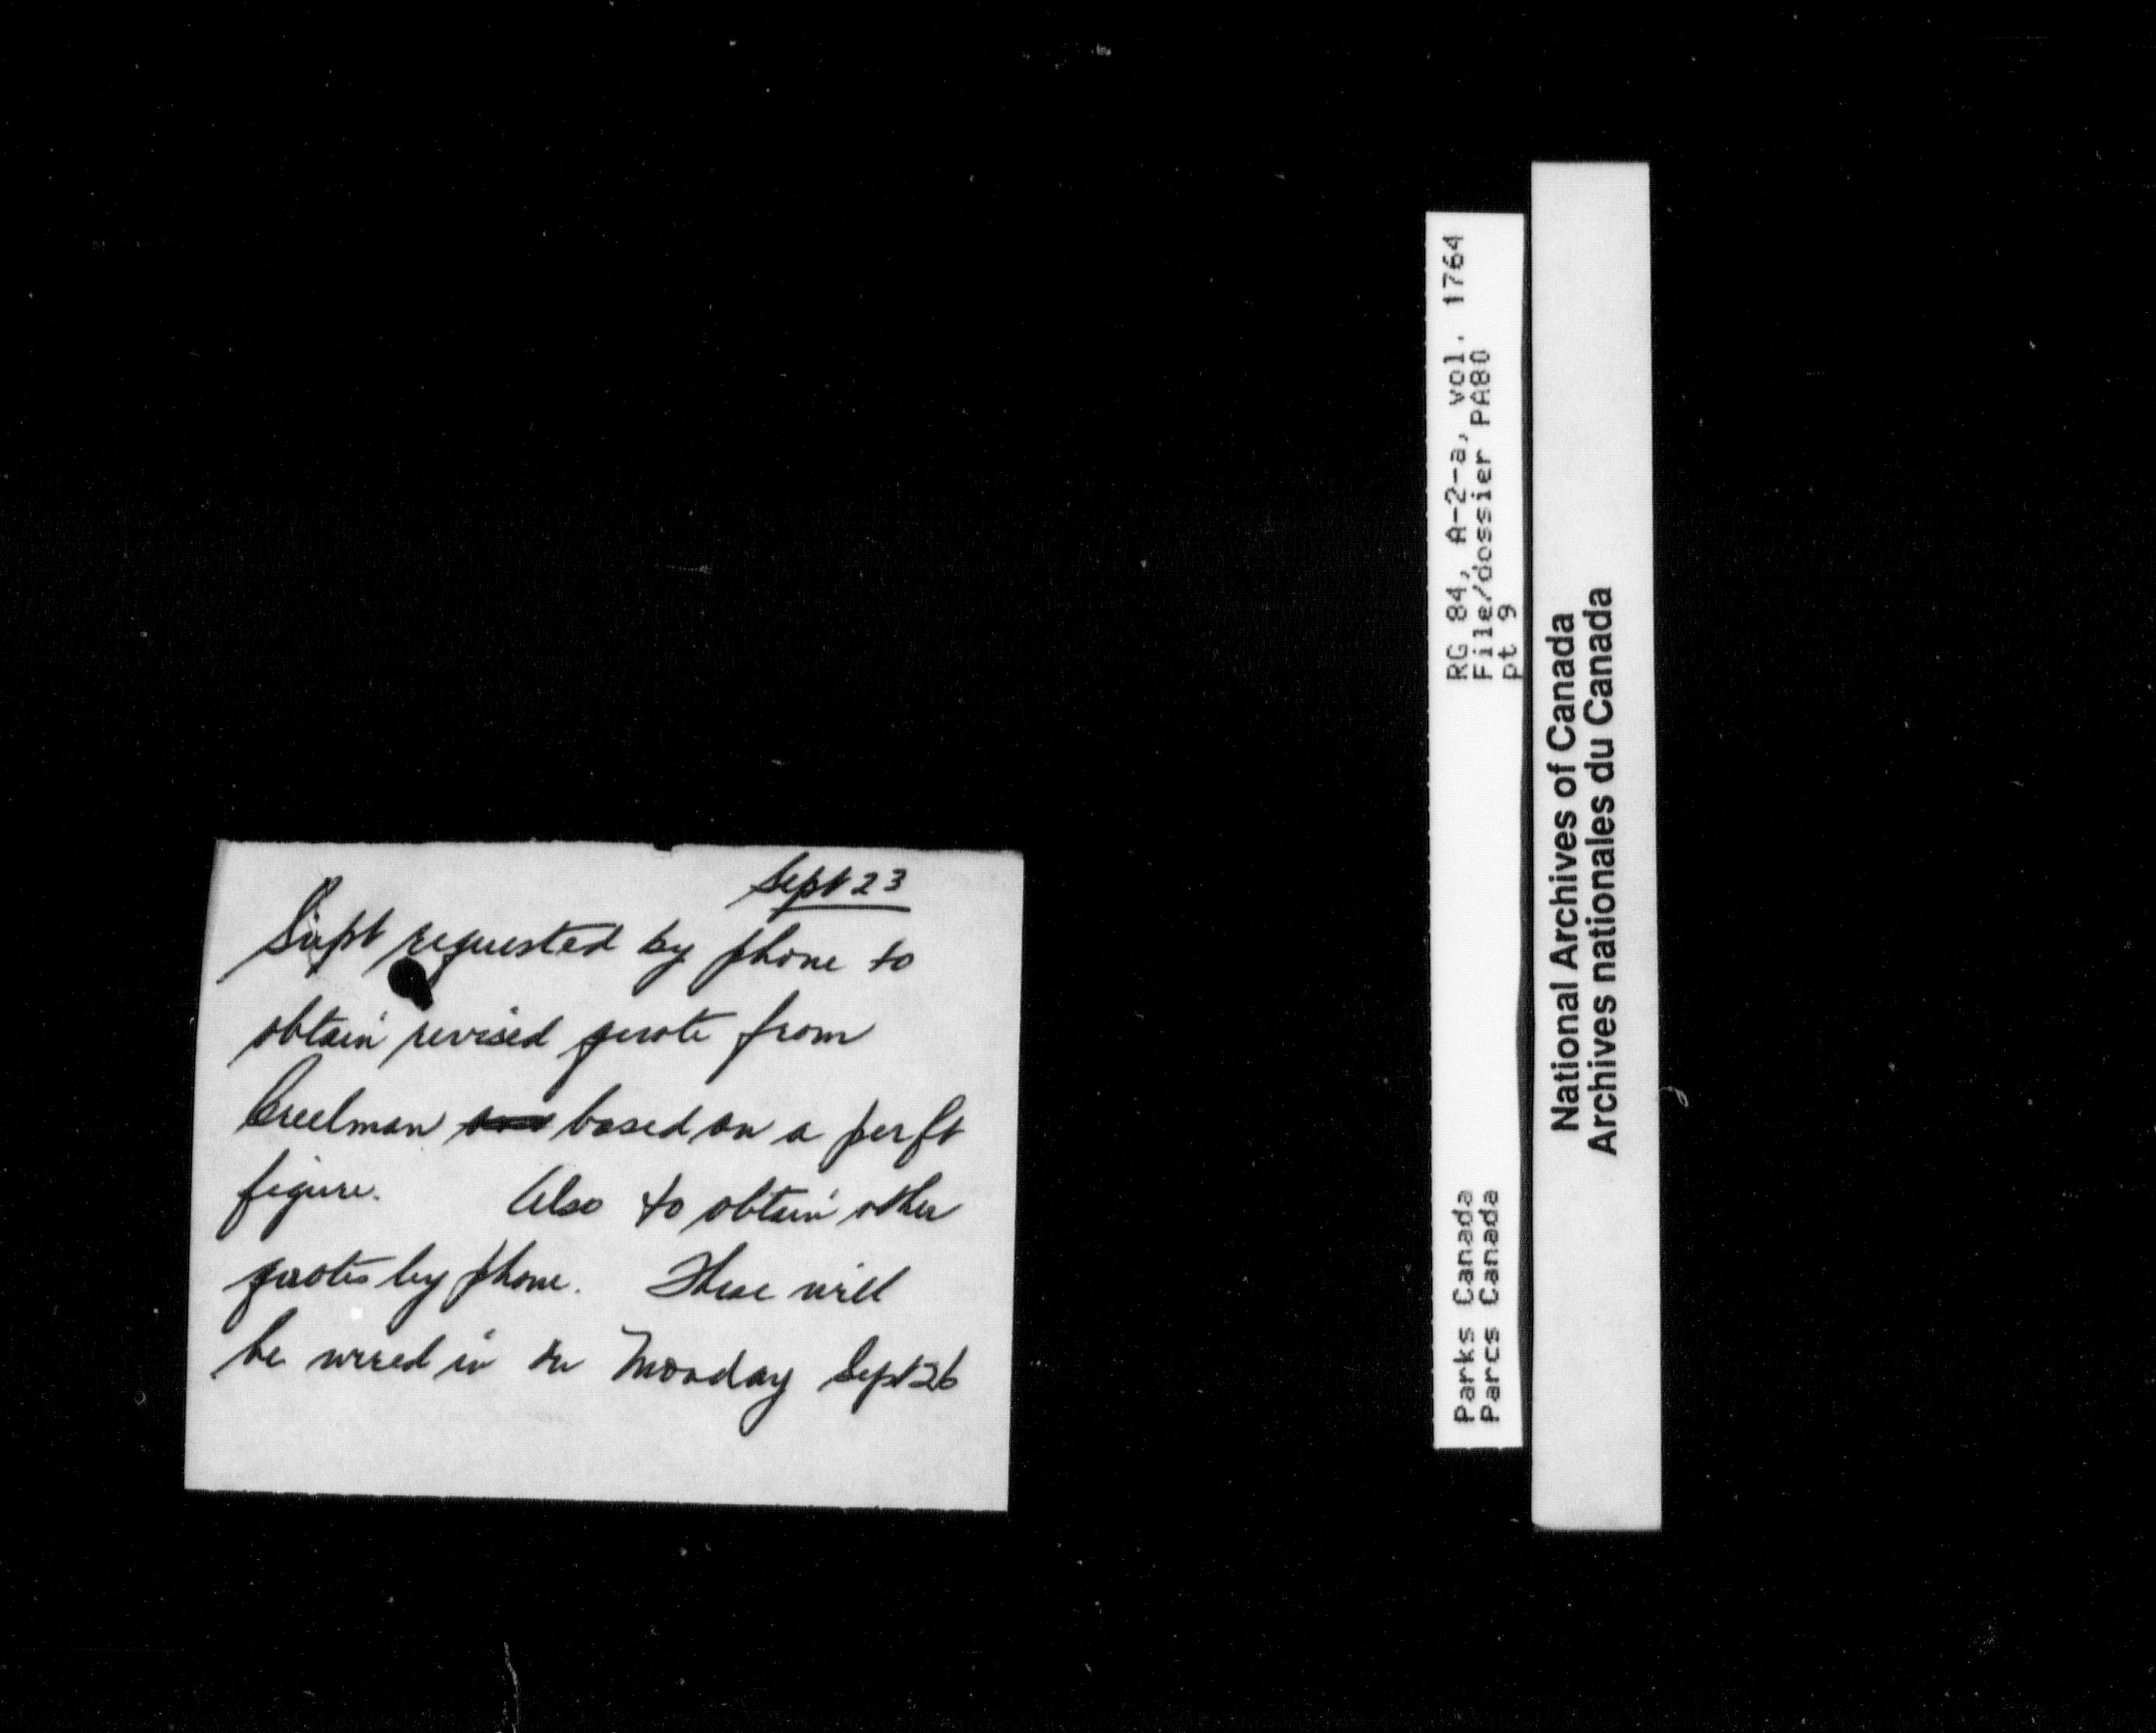 Sept 23
Supt requested by phone to
obtain revised quote from
Creelman based on a per ft
figure. Also to obtain other
quotes by phone. These will
be wired in on Monday Sept 26
RG 84, A-2-a, vol. 1764
File/dossier PA80
pt 9
Parks Canada
Parcs Canada
National Archives of Canada
Archives nationales du Canada